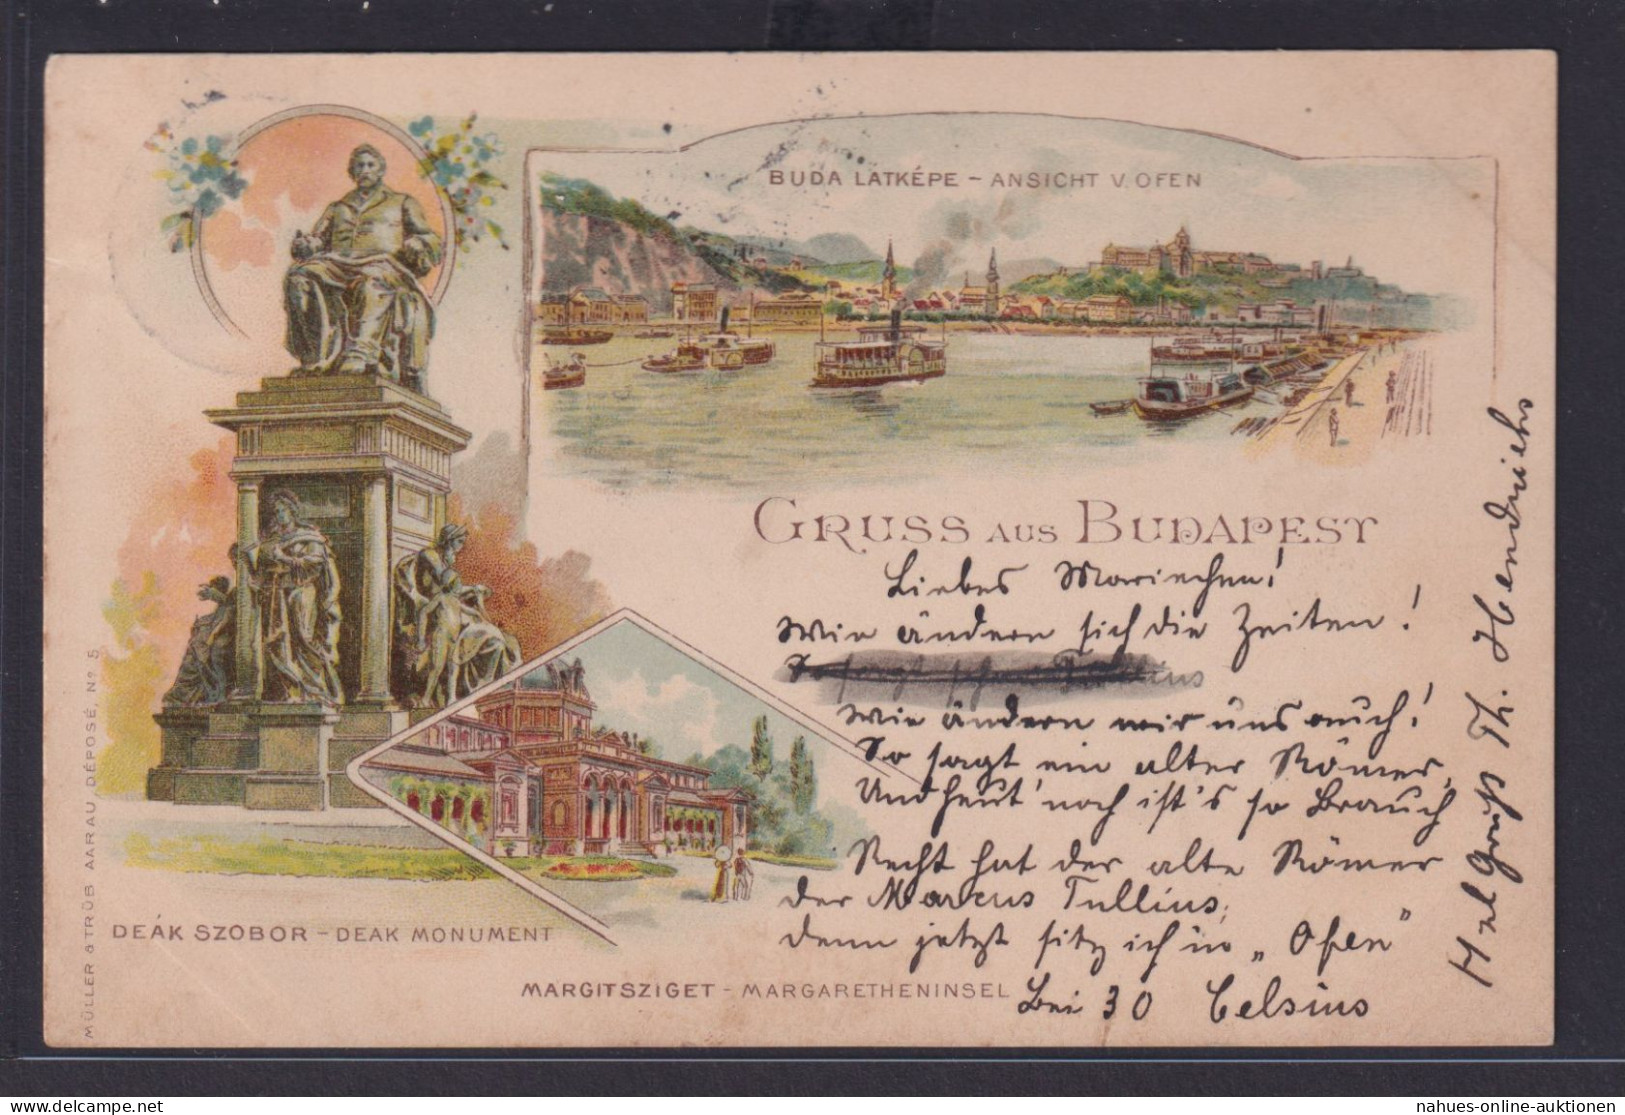 BUDA LATKÉPE - ANSICHT V. OFEN
GRUSS AUS BUDAPEST
Liebes Mariechen!
Wie ändern sich die Zeiten!
So sagt schon Tullius
Wie ändern wir uns auch!
So sagt ein alter Römer,
Und heut' noch ist's so Brauch
Recht hat der alte Römer
der Marcus Tullius;
denn jetzt sitz ich in „Ofen"
Bei 30 Celsius
Gruß Th. Hendrichs
DEÁK SZOBOR - DEAK MONUMENT
MARGITSZIGET - MARGARETHENINSEL
MÜLLER & TRÜB AARAU DÉPOSÉ, No 5
nahues-online-auktionen